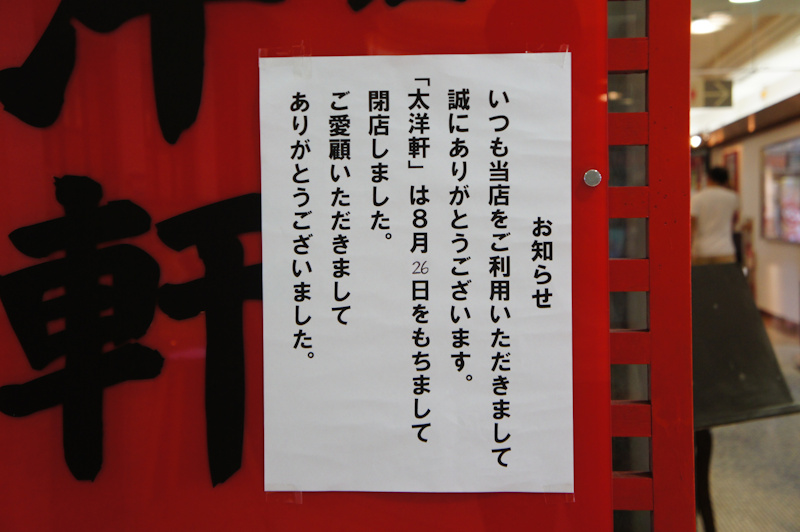 お知らせ
いつも当店をご利用いただきまして
誠にありがとうございます。
「太洋軒」は８月26日をもちまして
閉店しました。
ご愛顧いただきまして
ありがとうございました。
軒